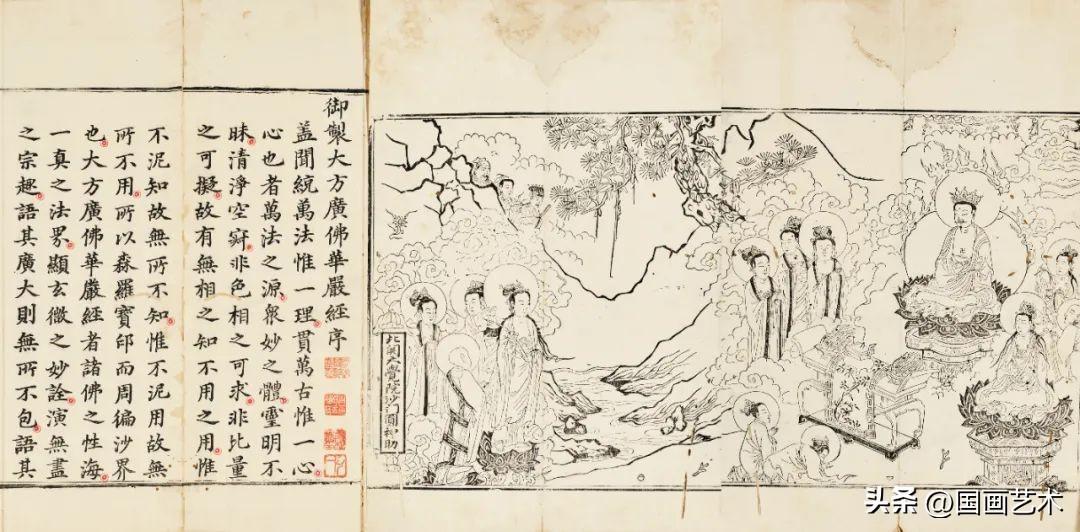 御製大方廣佛華嚴經序
蓋聞統萬法惟一理貫萬古惟一心
心也者萬法之源衆妙之體靈明不
昧清淨空寂非色相之可求非比量
之可擬故有無相之知不用之用惟
不泥知故無所不知惟不泥用故無
所不用所以森羅寶印而周徧沙界
也大方廣佛華嚴經者諸佛之性海
一真之法界顯玄微之妙詮演無盡
之宗趣語其廣大則無所不包語其
大覺沙門圓助
头条 @国画艺术